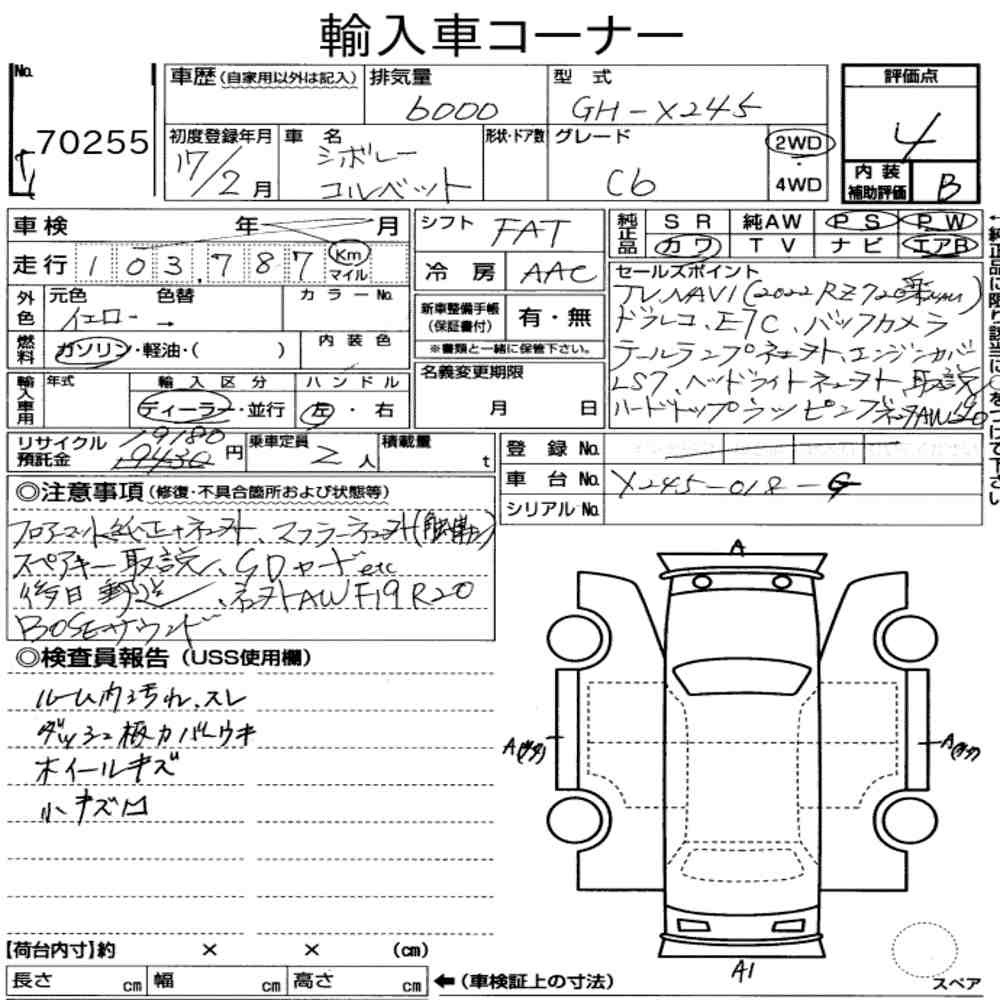 輸入車コーナー
No. 70255
車歴(自家用以外は記入) 排気量 6000 型式 GH-X245 評価点 4
初度登録年月 17/2月 車名 シボレー コルベット 形状・ドア数 グレード C6 2WD・4WD 内装補助評価 B
車検 年 月 シフト FAT 純正品 SR 純AW PS PW
走行 103,787 Km マイル 冷房 AAC カワ TV ナビ エアB
外色 元色 イエロー → 色替 カラーNo. 新車整備手帳(保証書付) 有・無
※書類と一緒に保管下さい。
燃料 ガソリン・軽油・( ) 内装色
セールスポイント
TV.NAVI(2022 RZ720
ドラレコ、ETC、バックカメラ
テールランプ社外、エンジンカバー
LS7、ヘッドライト社外、取説
ハードトップラッピング
輸入車用 年式 輸入区分 ディーラー・並行 ハンドル 左・右 名義変更期限 月 日
リサイクル預託金 19180 19430 円 乗車定員 2人 積載量 t
登録No.
車台No. X245-018-G
シリアルNo.
◎注意事項(修復・不具合箇所および状態等)
フロアマット
スペアキー 取説、SDカードetc
後日郵送 AW F19 R20
BOSEサウンド
◎検査員報告(USS使用欄)
ルーム内汚れ、スレ
ダッシュ板カバーウキ
ホイールキズ
小キズ凹
A
A
A
A1
【荷台内寸】約 × × (cm)
長さ cm 幅 cm 高さ cm ←(車検証上の寸法)
スペア